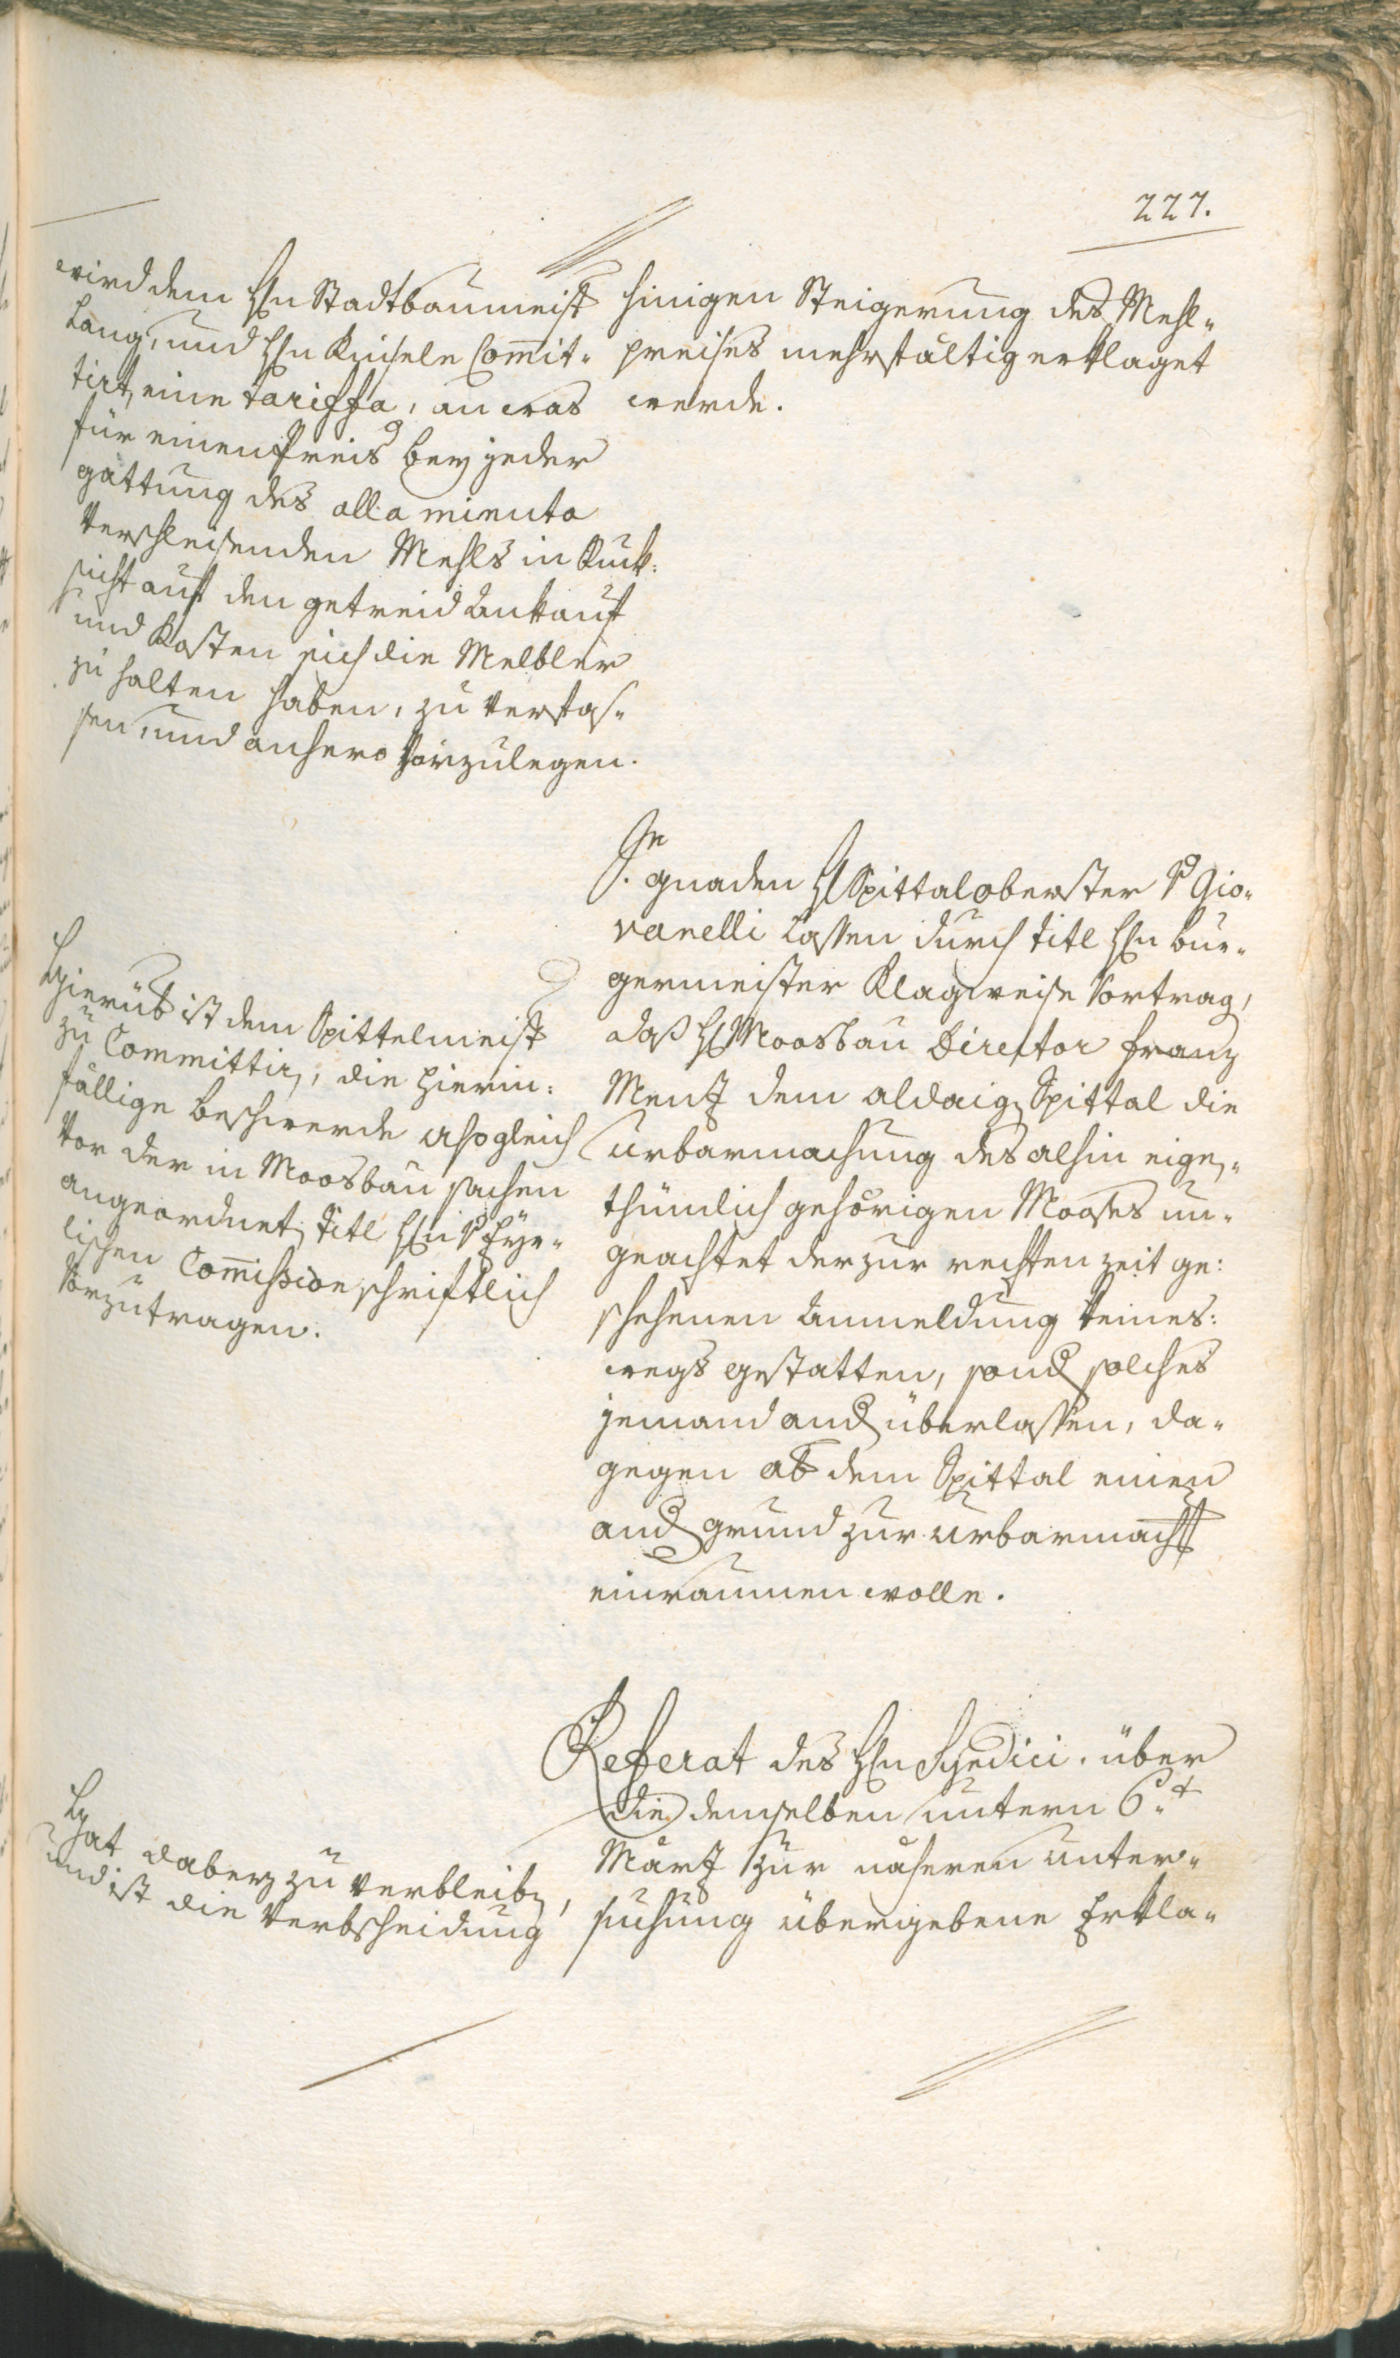 227.
wird dem Hn Stadtbaumeist
Lang, und Hn Knisele Com̅it-
tirt, eine tariffa, an was
für einen Preis bey jeder
gattung des alla minuta
verschleisenden Mehls in Ruck-
sicht auf den getreid Ankauf
und Kosten sich die Melbler
zu halten haben, zu verfas-
sen, und anhero vorzulegen.
hinigen Steigerung des Mehl-
preises mehrfältig erklaget
werde.
Hierüb ist dem Spittelmeist
zu Committir, die hierin-
fällige beschwerde alsogleich
vor der in Moosbau sachen
angeordnet titl Hn v
lischen Com̅ission schriftlich
vorzutragen.
Sr gnaden H Spittaloberster v Gio-
vanelli Lassen durch titl Hn bur-
germeister Klagweise Vortrag,
daß H Moosbau Director Franz
Menz dem aldaig Spittal die
urbarmachung des alhin eigen-
thümlich gehörigen Mooses un-
geachtet der zur rechten zeit ge-
schehenen Anmeldung keines-
wegs gestatten, sond solches
jemand and überlassen, da-
gegen ab dem Spittal einen
and grund zur urbarmach
einraumen wolle.
Hat dabey zu verbleib,
und ist die Verbscheidung
Referat des Hn Syndici über
die demselben untern 6.t
März zur näheren unter-
suchung übergebene Erkla-